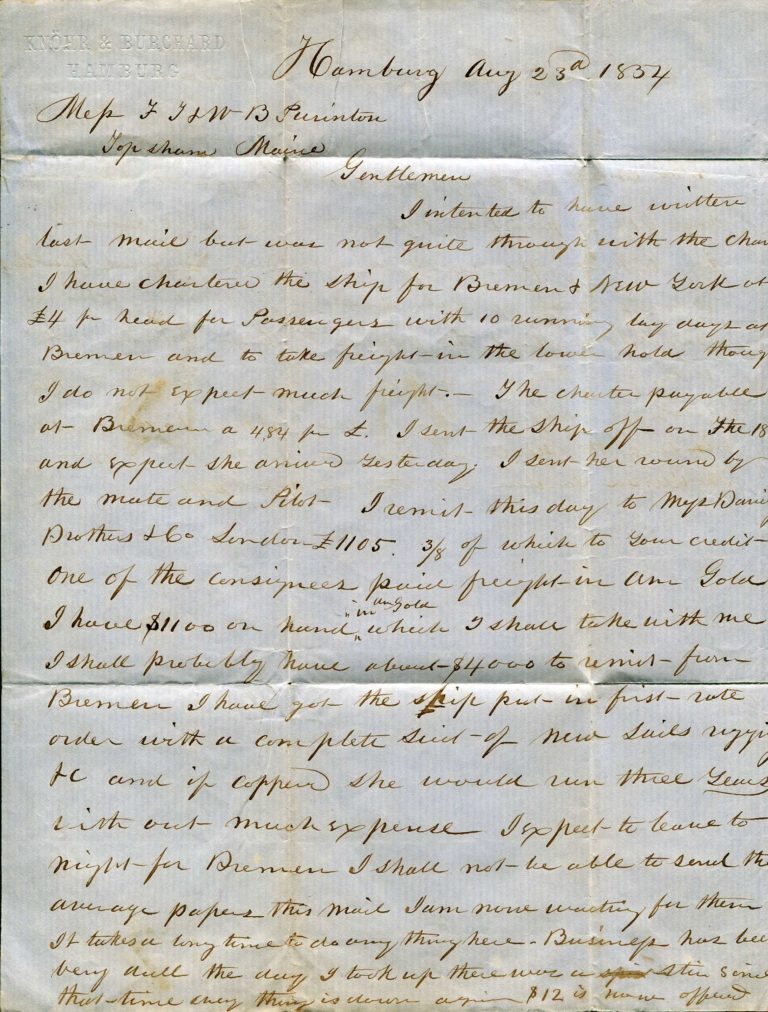 KNÖHR & BURCHARD
HAMBURG
Hamburg Aug 23d 1854
Mess F T & W B Purinton
Topsham Maine
Gentlemen
I intented to have written
last mail but was not quite through with the char
I have chartered the ship for Bremen & New York at
£4 pr head for Passengers with 10 running lay days at
Bremen and to take freight in the lower hold though
I do not expect much freight. – The charter payable
at Bremen a 484 pr £. I sent the ship off on The 18
and expect she arrived yesterday. I sent her round by
the mate and Pilot – I remit this day to Mess
Brothers & Co London £1105. 3/8 of which to your credit
One of the consignees paid freight in am Gold
I have $1100 on hand "in am Gold" which I shall take with me
I shall probbly have about $4000 to remit from
Bremen I have got the ship put in first rate
order with a complete suit of new sails
&c and if copperd she would run three Years
with out much expense I expect to leave to
night for Bremen I shall not be able to send the
average papers this mail I am now waiting for them
It takes a long time to do any thing here – Business has bee
very dull the day I took up there was a stir since
that time evry thing is down again $12 is now offered